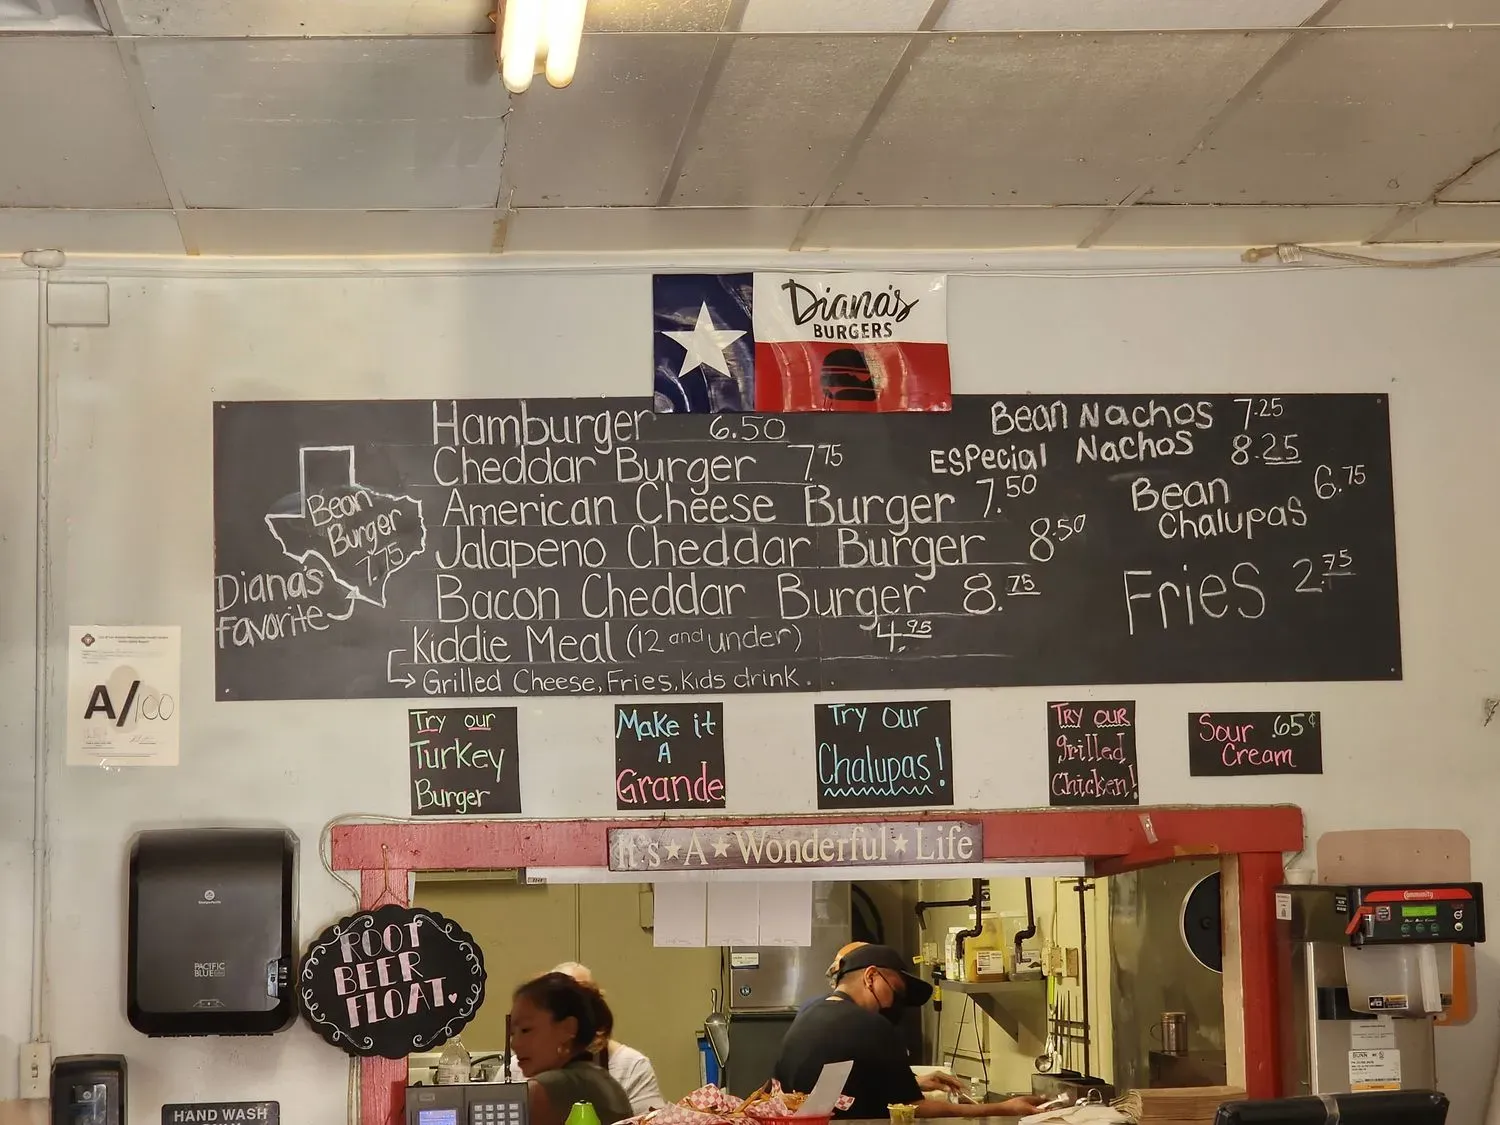 Diana's
BURGERS
Hamburger 6.50
Cheddar Burger 7.75
American Cheese Burger 7.50
Jalapeno Cheddar Burger 8.50
Bacon Cheddar Burger 8.75
Kiddie Meal (12 and under) 4.95
Grilled Cheese, Fries, Kids drink.
Bean
Burger
7.75
Diana's
favorite
Bean Nachos 7.25
ESPecial Nachos 8.25
Bean 6.75
Chalupas
Fries 2.75
A/100
Try our
Turkey
Burger
Make it
A
Grande
Try Our
Chalupas!
Try our
grilled
Chicken!
Sour .65¢
Cream
It's★A★Wonderful★Life
ROOT
BEER
FLOAT.
PACIFIC
BLUE
Community
BUNN
HAND WASH